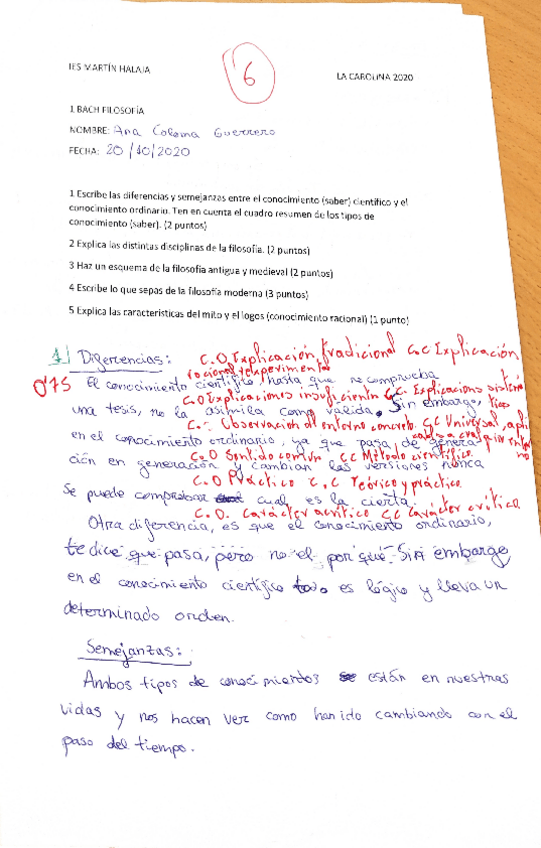 IES MARTÍN HALAJA
6
LA CAROLINA 2020
1 BACH FILOSOFÍA
NOMBRE: Ana Coloma Guerrero
FECHA: 20/10/2020
1 Escribe las diferencias y semejanzas entre el conocimiento (saber) científico y el
conocimiento ordinario. Ten en cuenta el cuadro resumen de los tipos de
conocimiento (saber). (2 puntos)
2 Explica las distintas disciplinas de la filosofía. (2 puntos)
3 Haz un esquema de la filosofía antigua y medieval (2 puntos)
4 Escribe lo que sepas de la filosofía moderna (3 puntos)
5 Explica las características del mito y el logos (conocimiento racional) (1 punto)
1 Diferencias:
C.O Explicación tradicional C.C Explicación
racional y experimental
0'75 El conocimiento científico, hasta que no comprueba
C.O Explicaciones insuficientes C.C. Explicacions sistemá
ticas
una tesis, no la asimila como válida. Sin embargo,
C.O. Observación del entorno concreto. C.C Universal, apli
cable a cualquier entor
no
en el conocimiento ordinario, ya que pasa, de genera-
C.O Sentido común C.C Método científico
ción en generación y cambian las versiones nunca
C.O Práctico C.C Teórico y práctico
se puede comprobar cual es la cierta.
C.O. Carácter acrítico C.C Carácter crítico
Otra diferencia, es que el conocimiento ordinario,
te dice que pasa, pero no el por qué. Sin embargo
en el conocimiento científico todo es lógico y lleva un
determinado orden.
Semejanzas:
Ambos tipos de conocimientos están en nuestras
vidas y nos hacen ver como han ido cambiando con el
paso del tiempo.